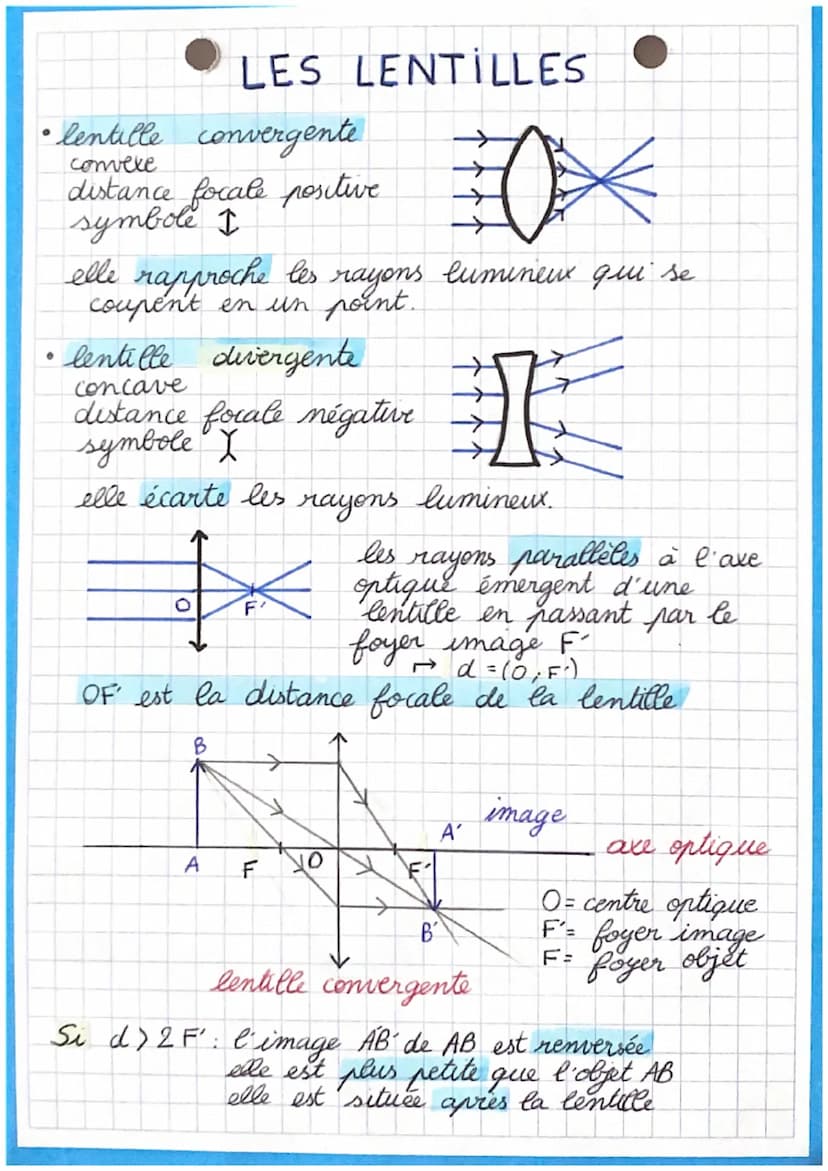 LES LENTILLES
• lentille convergente
convexe
distance focale positive
symbole ↕
elle rapproche les rayons lumineux qui se
coupent en un point.
• lentille divergente
concave
distance focale négative
symbole
elle écarte les rayons lumineux.
les rayons parallèles à l'axe
optique émergent d'une
lentille en passant par le
foyer image F'
↦ d = (O, F')
O
F'
OF' est la distance focale de la lentille
B
image
A'
axe optique
A
F
O
F'
B'
O = centre optique
F' = foyer image
F = foyer objet
lentille convergente
Si d > 2 F' : l'image A'B' de AB est renversée
elle est plus petite que l'objet AB
elle est située après la lentille